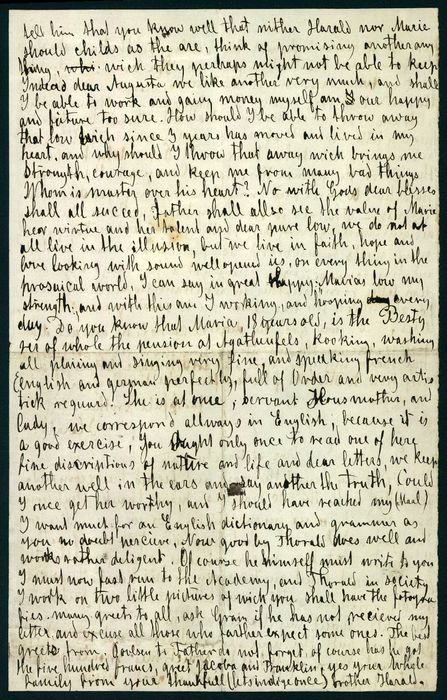 tell him that you know well that nither Harald nor Marie
should childs as the are, think of promising another any
thing, wich they perhaps might not be able to keep
Indeed dear Augusta we like another very much, and shall
I be able to work and gainy money myself am I our happy
and furture too sure. How should I be able to throw away
that low wich since 3 years has moved and lived in my
heart, and why should I throw that away wich brings me
Strength, courage, and keep me from many bad things
Whom is master over his heart? No with Gods dear blesses
shall all succed, Father shall allso see the value of Marie
hear virtue and her talent and dear pure low, we do not at
all live in the illusion, but we live in faith, hope and
love looking with sound well opened on every thing in the
prosaical world, I can say in great happy. Marias low my
strength, and with this am I working, and hooping every
day. Do you know that Maria, 18 years old, is the Besty
rer of whole the pension at Agathenfels, Kooking, washing
all plaining and singing very fine, and speeking french
English and german perfectly, full of Order and very artis
tick reguard! She is at once, servant Housmother, and
lady, we correspond allways in English, because it is
a good exercise, You ought only once to read one of here
fine discriptions of nature and life and dear letters, we keep
another well in the ears any say another the truth, Could
I once get her worthy, and I should have reached my (Maal)
I want much for an English dictionary and grammer as
you no doubt percieve, Now good by Thorald lives well and
works rather diligent. Of course he himself must write to you
I must now fast run to the Academy, and Thorald in society
I work on two little pictures of wich you shall have the potogra
fies. many greets to all, ask Gram if he has not recieved my
letter, and excuse all those who farther expect some ones. The best
greets from to Father do not forget, of course has he got
the five hundred francs, greet Jacoba and Franklin, yes your whole
Family from your thankfull brother Harald.